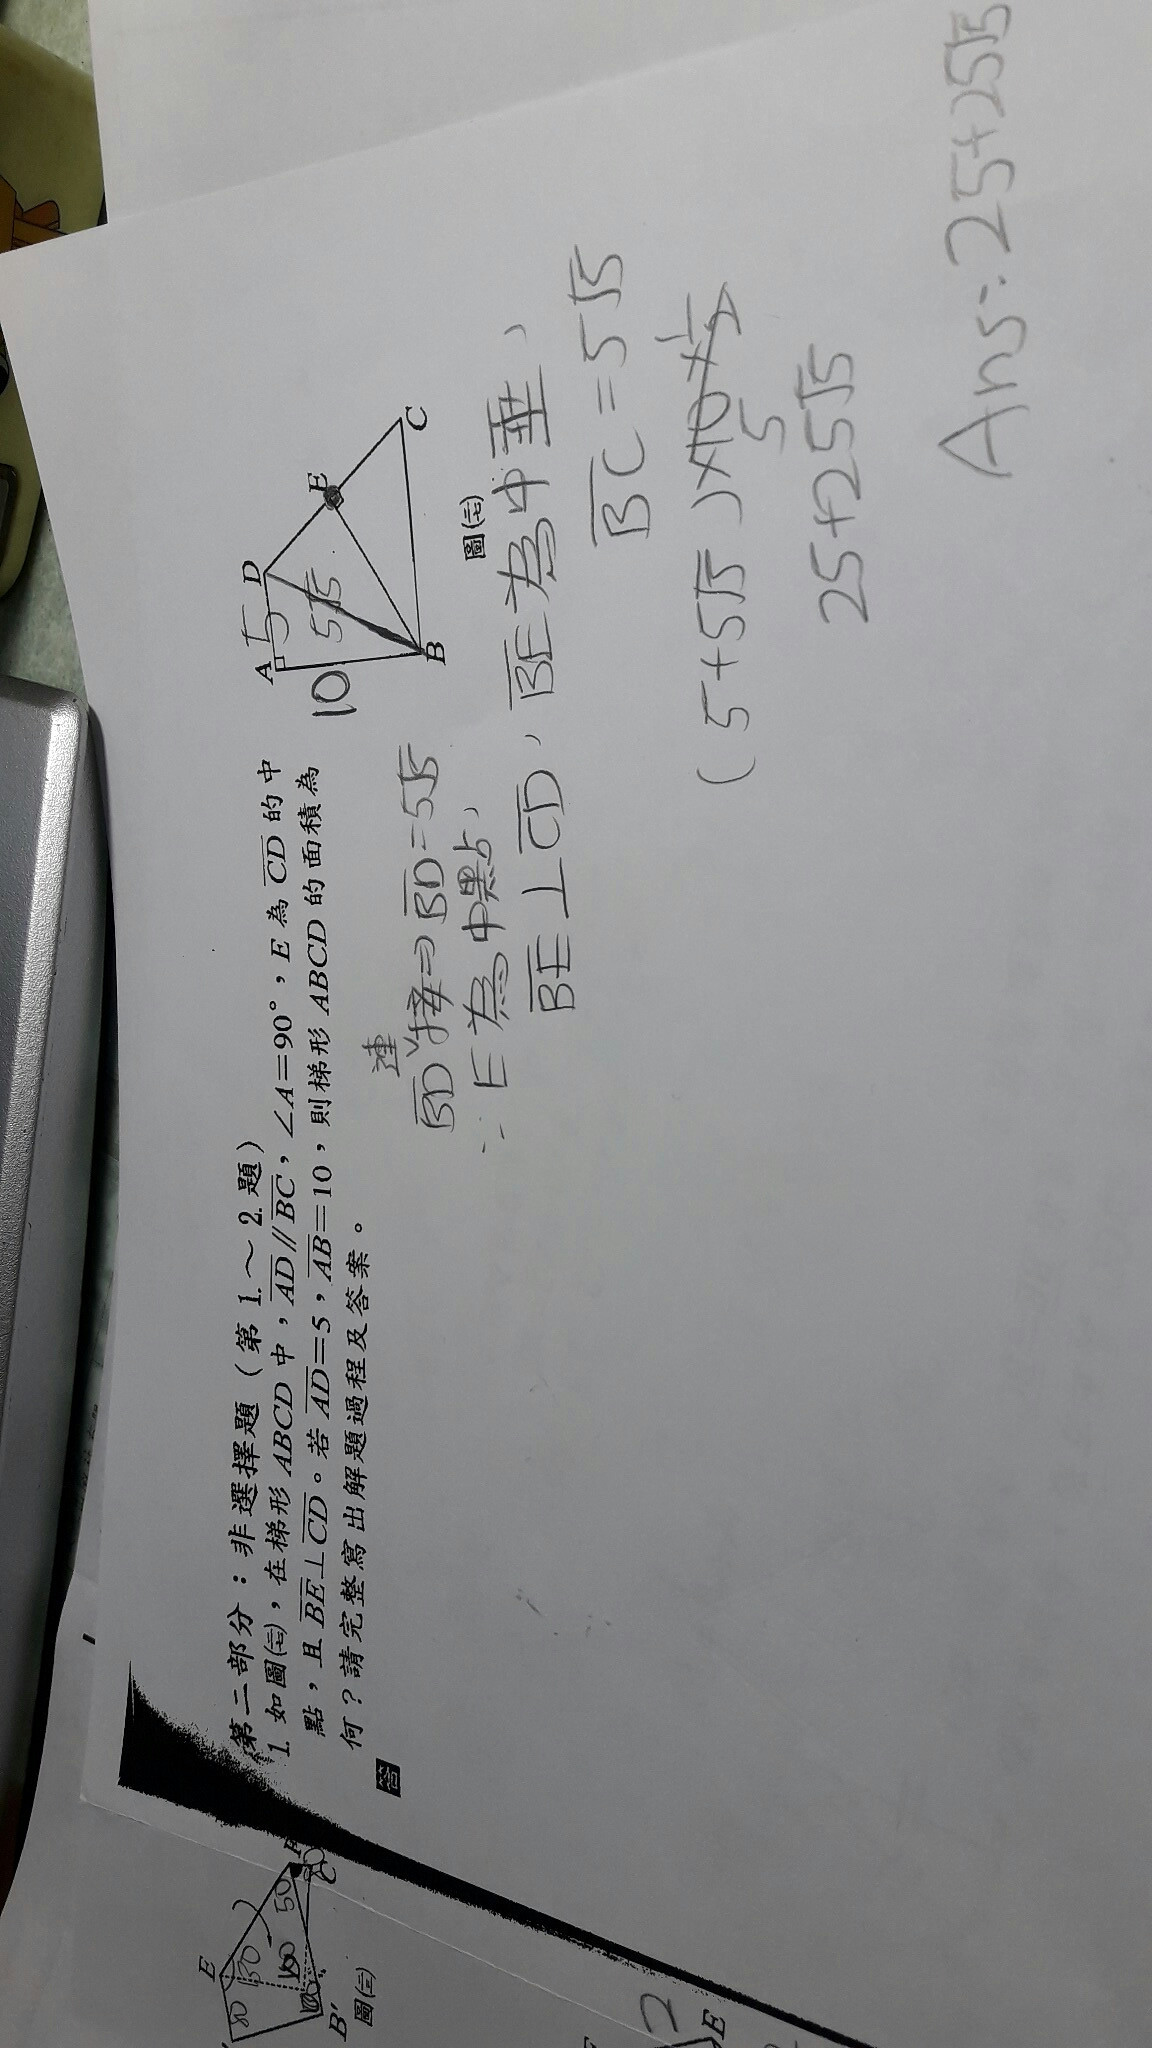 第二部分：非選擇題（第1.～2.題）
1. 如圖(二七)，在梯形ABCD中，AD//BC，∠A=90°，E為CD的中
點，且BE⊥CD。若AD=5，AB=10，則梯形ABCD的面積為
何？請完整寫出解題過程及答案。
答
A 5 D
10 5√5 E
B C
圖(二七)
連
BD接⇒BD=5√5
∵E為中點、
BE⊥CD、BE為中垂、
BC=5√5
(5+5√5)×10×1/2
5
25+25√5
Ans:25+25√5
E
80 130
50
C
B'
2
E